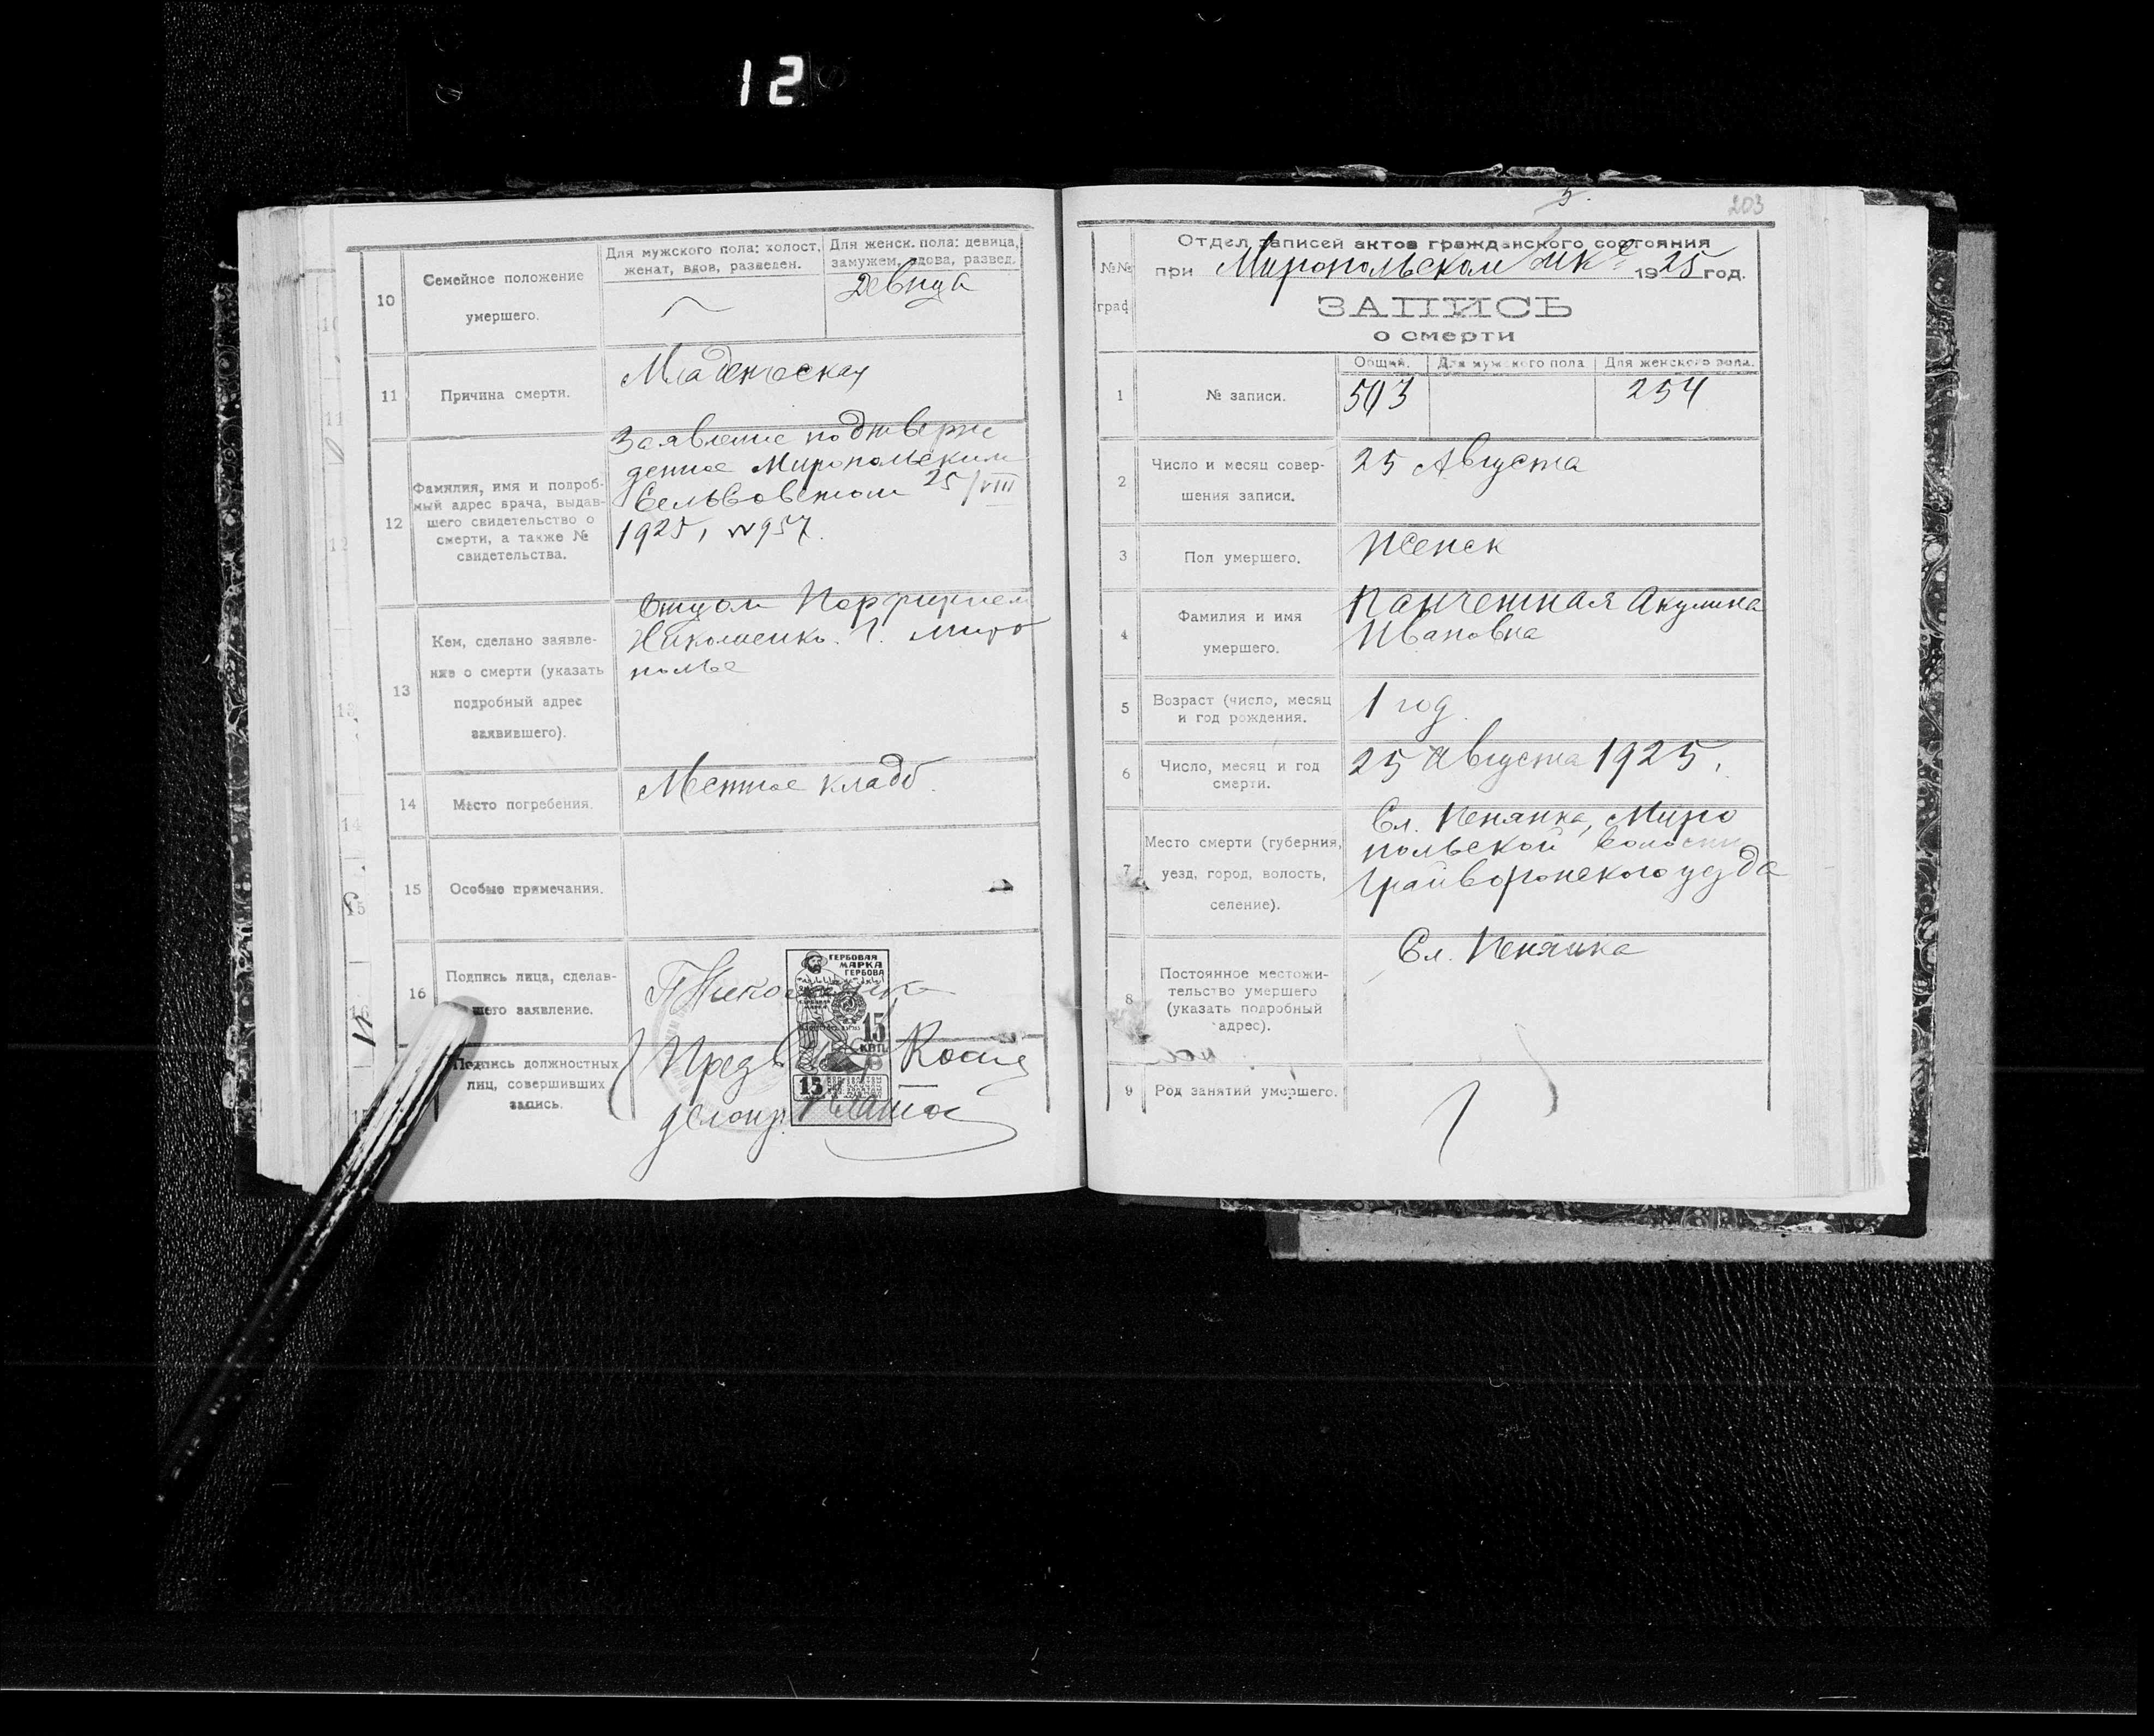 12
10
Семейное положение
умершего.
Для мужского пола: холост,
женат, вдов, разведен.
Для женск. пола: девица,
замужем, вдова, развед.
девица
11
Причина смерти.
Младенческая
12
Фамилия, имя и подроб-
ный адрес врача, выдав-
шего свидетельство о
смерти, а также №
свидетельства.
Заявление подтверж
денное Миропольским
Сельсоветом 25/VIII
1925, №957.
13
Кем, сделано заявле-
ние о смерти (указать
подробный адрес
заявившего).
Отцом Порфирием
Николаенко. Г. Миро
полье
14
Место погребения.
Местное кладб.
15
Особые примечания.
16
Подпись лица, сделав-
шего заявление.
П Николаенко
ГЕРБОВАЯ
МАРКА
ГЕРБОВА
15
КОП.
15
Подпись должностных
лиц, совершивших
запись.
делопр.
203
№№
граф
Отдел записей актов гражданского состояния
при Миропольском 1925 год.
ЗАПИСЬ
о смерти
1
№ записи.
Общий.
Для мужского пола
Для женского пола.
503
254
2
Число и месяц совер-
шения записи.
25 Августа
3
Пол умершего.
Женск
4
Фамилия и имя
умершего.
Панченная Акулина
Ивановна
5
Возраст (число, месяц
и год рождения.
1 год.
6
Число, месяц и год
смерти.
25 Августа 1925,
7
Место смерти (губерния,
уезд, город, волость,
селение).
Сл. Пенянка, Миро
польской волости
Грайворонского уезда
8
Постоянное местожи-
тельство умершего
(указать подробный
адрес).
Сл. Пенянка
9
Род занятий умершего.